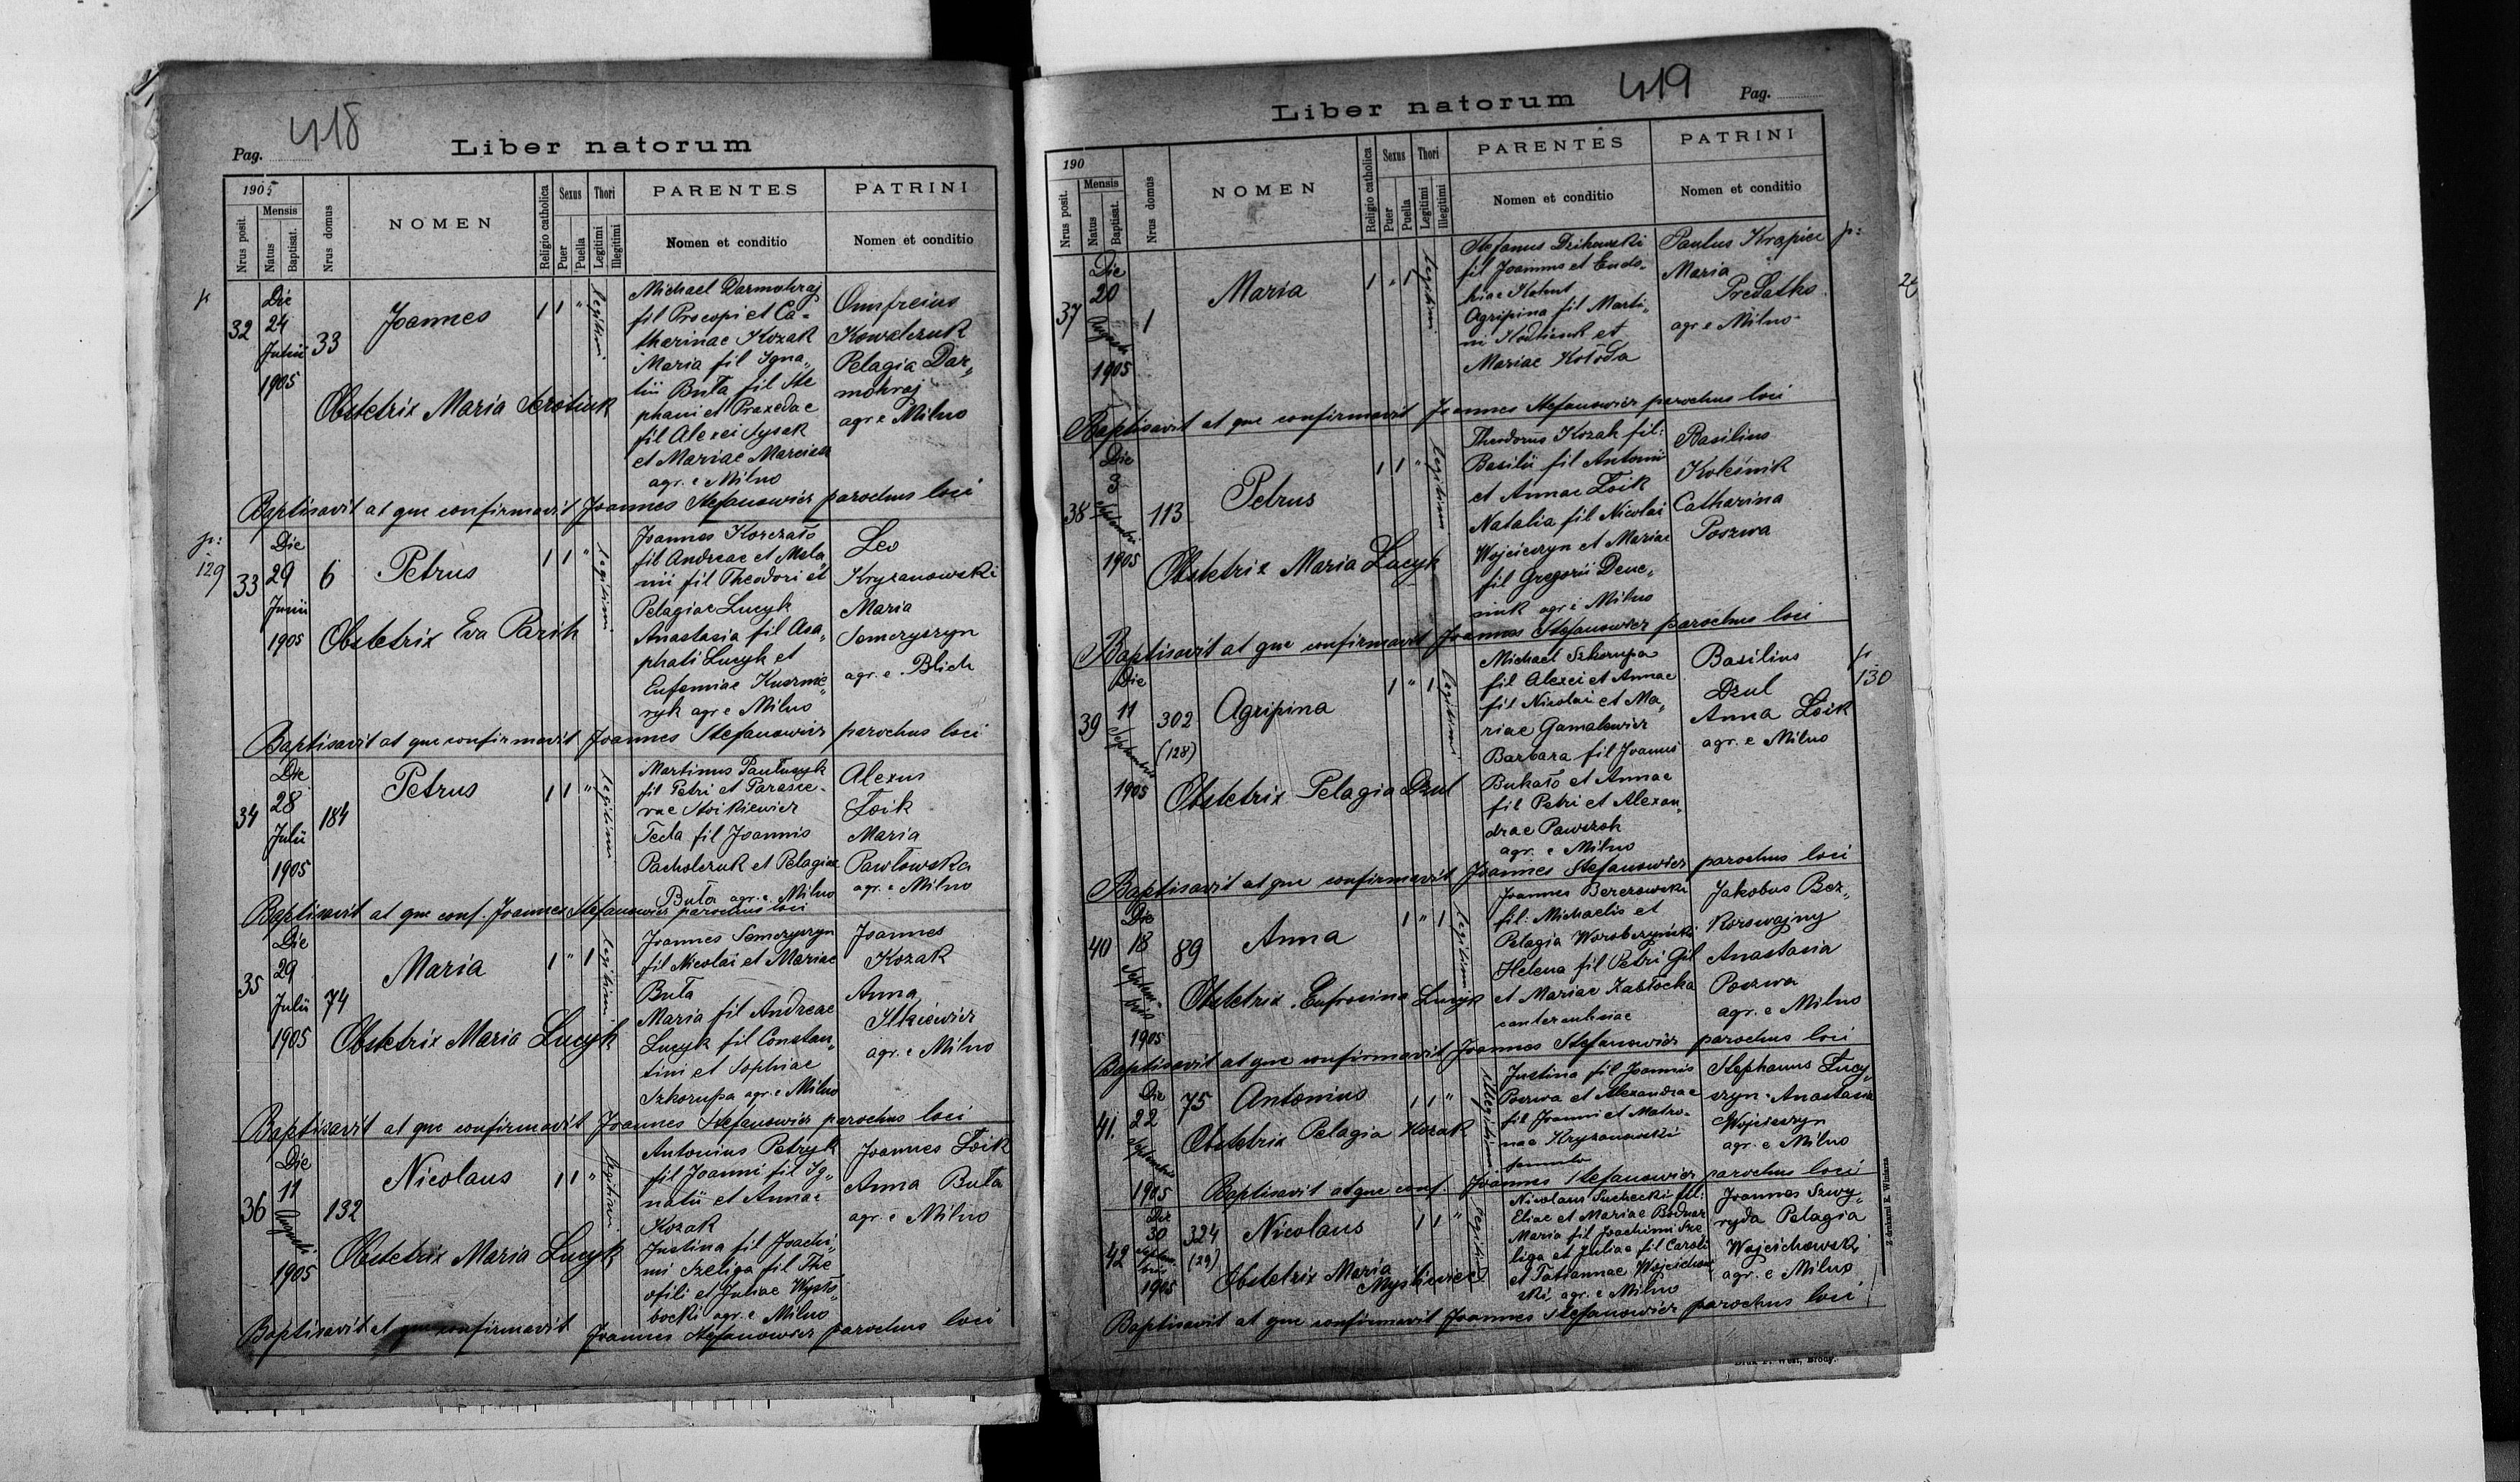 418
Pag.
Liber natorum
1905
Nrus posit.
Mensis
Natus
Baptisat.
Nrus domus
NOMEN
Religio catholica
Sexus
Puer
Puella
Thori
Legitimi
Illegitimi
PARENTES
Nomen et conditio
PATRINI
Nomen et conditio
32
Die
24
Julii
1905
33
Joannes
1 1 "
legitimi
Obstetrix Maria
Michael Darmohraj
fil Procopi et Ca-
therinae Kozak
Maria fil Igna„
tii Buła fil Ste
phani et Praxedae
fil Alexei Sysak
et Mariae Marciszk
agr. e Milno
Onufreius
Kowalczuk
Pelagia Dar„
mohraj
agr e Milno
Baptisavit at que confirmavit Joannes Stefanowicz parochus loci
p:
129
33
Die
29
Junii
1905
6
Petrus
1 1 "
legitimi
Obstetrix Eva Parih
Joannes Korczało
fil Andreae et Mela„
nii fil Theodori et
Pelagiae Lucyk
Anastasia fil Asa„
phati Lucyk et
Eufemiae Kuzmie„
ryk agr e Milno
Leo
Kryzanowski
Maria
Semczyszyn
agr. e Blich
Baptisavit at que confirmavit Joannes Stefanowicz parochus loci
34
Die
28
Julii
1905
184
Petrus
1 1 "
legitimi
Martinus Pauluczyk
fil Petri et Parasce-
vae Stoikiewicz
Tecla fil Joannis
Pacholczuk et Pelagiae
Buła agr. e. Milno
Alexus
Łoik
Maria
Pawłowska
agr. e Milno
Baptisavit at que conf. Joannes Stefanowicz parochus loci
35
Die
29
Julii
1905
74
Maria
1 " 1
legitimi
Obstetrix Maria Lucyk
Joannes Semczyszyn
fil Nicolai et Mariae
Buła
Maria fil Andreae
Lucyk fil Constan„
tini et Sophiae
Szkorupa agr. e Milno
Joannes
Kozak
Anna
Ilkiewicz
agr. e Milno
Baptisavit at que confirmavit Joannes Stefanowicz parochus loci
36
Die
11
Augusti
1905
132
Nicolaus
1 1 "
legitimi
Obstetrix Maria Lucyk
Antonius Petryk
fil Joanni fil Ig„
natii et Annae
Kozak
Justina fil Joachi„
mi Szeliga fil The
ofili et Juliae Wysło„
bocki agr. e Milno
Joannes Łoik
Anna Buła
agr. e Milno
Baptisavit at que confirmavit Joannes Stefanowicz parochus loci
419
Liber natorum
Pag.
190
Nrus posit.
Mensis
Natus
Baptisat.
Nrus domus
NOMEN
Religio catholica
Sexus
Puer
Puella
Thori
Legitimi
Illegitimi
PARENTES
Nomen et conditio
PATRINI
Nomen et conditio
37
Die
20
Augusti
1905
1
Maria
1 " 1
legitimi
Stefanus Dzikowski
fil Joannis et Eudo-
kiae Kohut
Agripina fil Marti„
ni et
Mariae Kołoda
Paulus Krapicz
Maria
Predatko
agr e Milno
p:
Baptisavit at que confirmavit Joannes Stefanowicz parochus loci
38
Die
3
Septembris
1905
113
Petrus
1 1 "
legitimi
Obstetrix Maria Lucyk
Theodorus Kozak fil:
Basilii fil Antonii
et Annae Łoik
Natalia fil Nicolai
Wojcieszyn et Mariae
fil Gregorii Dene„
siuk agr e Milno
Basilius
Koleśnik
Catharina
Poszwa
Baptisavit at que confirmavit Joannes Stefanowicz parochus loci
39
Die
11
Septembris
1905
302
(128)
Agripina
1 " 1
legitimi
Obstetrix Pelagia Dzul
Michael Szkorupa
fil Alexei et Annae
fil Nicolai et Ma„
riae Gamalowicz
Barbara fil Joannis
Bukało et Annae
fil Petri et Alexan„
drae Pawczak
agr. e Milno
Basilius
Dzul
Anna Łoik
agr. e Milno
130
Baptisavit at que confirmavit Joannes Stefanowicz parochus loci
40
Die
18
Septem-
bris
1905
89
Anna
1 " 1
legitimi
Obstetrix Eufrosina Lucyk
Joannes Berezowski
fil: Michaelis et
Pelagia Worobczyński
Helena fil Petri Gil
et Mariae Zabłocka
Jakobus Bez„
Korowajny
Anastasia
Poszwa
agr. e Milno
Baptisavit at que confirmavit Joannes Stefanowicz parochus loci
41.
Die
22
Septembris
1905
75
Antonius
1 1 "
illegitimi
Obstetrix Pelagia Kozak
Justina fil Joannis
Poszwa et Alexandrae
fil Joanni et Matro-
nae Kryzanowski
famula
Stephanus Łucy„
szyn. Anastasia
Wojcieszyn
agr. e Milno
Baptisavit at que conf. Joannes Stefanowicz parochus loci
42
Die
30
Septem-
bris
1905
324
(29)
Nicolaus
1 1 "
legitimi
Obstetrix Maria
Mysliwiec
Nicolaus Suchecki fil:
Eliae et Mariae Bodnar
Maria fil Joachimi Sze
liga et Juliae fil Caroli
et Tatiannae Wojcichow
ski, agr. e Milno
Joannes Szwy„
ryda Pelagia
Wojcichowski
agr. e Milno
Baptisavit at que confirmavit Joannes Stefanowicz parochus loci
Z drukarni E. Winiarza
Druk F. West, Brody.